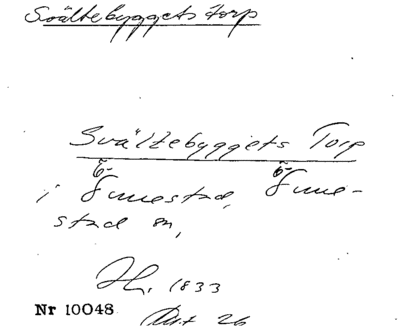 Svältebyggets torp
Svältebyggets Torp
i Gunnestad, Gunne-
stad sn,
1833
Nr 10048
26